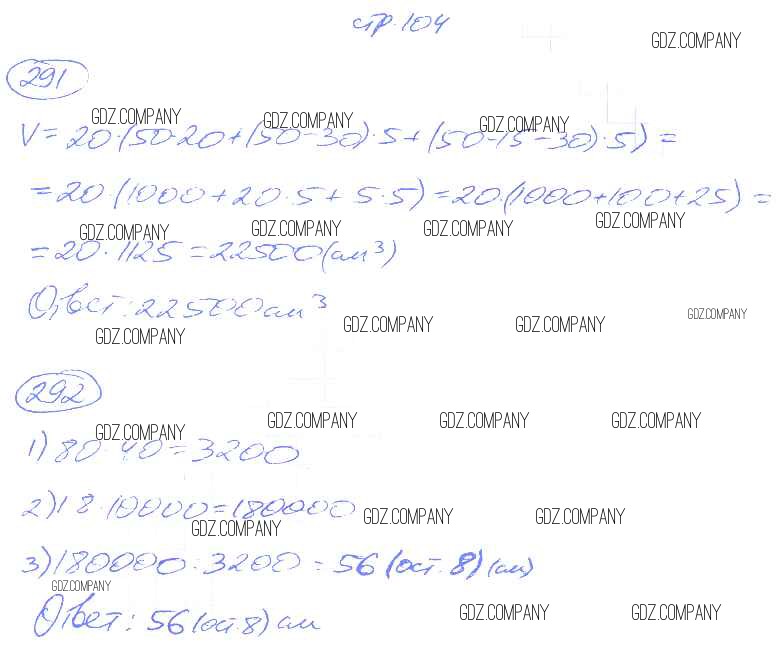 стр. 104
GDZ.COMPANY
291
GDZ.COMPANY GDZ.COMPANY GDZ.COMPANY
V = 20·(50·20+(50-30)·5+(50-15-30)·5) =
= 20·(1000+20·5+5·5) = 20·(1000+100+25) =
GDZ.COMPANY GDZ.COMPANY GDZ.COMPANY GDZ.COMPANY
= 20·1125 = 22500 (см³)
Ответ: 22500 см³
GDZ.COMPANY GDZ.COMPANY GDZ.COMPANY GDZ.COMPANY
292
GDZ.COMPANY GDZ.COMPANY GDZ.COMPANY GDZ.COMPANY
1) 80·40 = 3200
2) 18·10000 = 180000
GDZ.COMPANY GDZ.COMPANY GDZ.COMPANY
3) 180000 : 3200 = 56 (ост. 8) (см)
GDZ.COMPANY
Ответ: 56 (ост. 8) см
GDZ.COMPANY GDZ.COMPANY